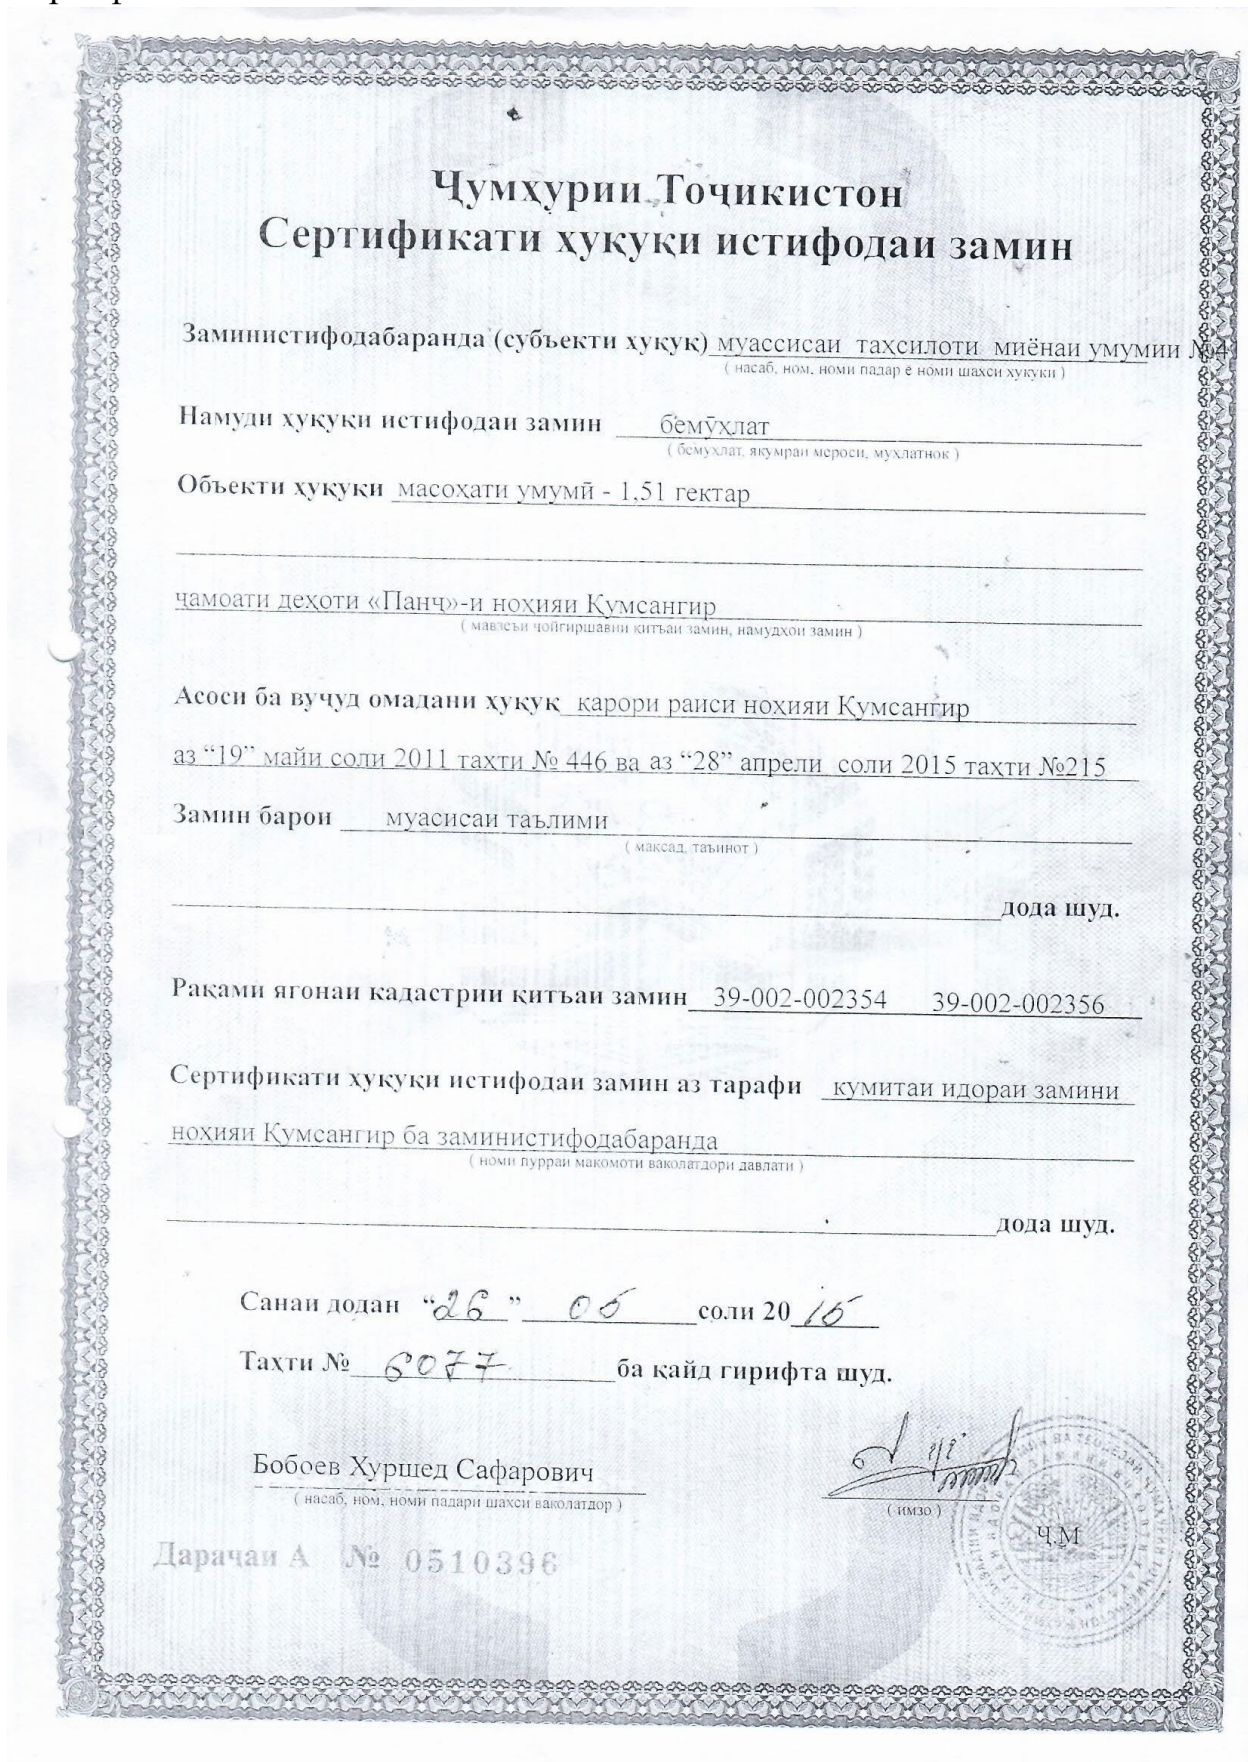 Ҷумҳурии Тоҷикистон
Сертификати ҳуқуқи истифодаи замин
Заминистифодабаранда (субъекти ҳуқуқ) муассисаи таҳсилоти миёнаи умумии
( насаб, ном, номи падар ё номи шахси хукуки )
Намуди ҳуқуқи истифодаи замин бемӯҳлат
( бемухлат, якумраи мероси, мухлатнок )
Объекти ҳуқуқи масоҳати умумӣ - 1,51 гектар
ҷамоати деҳоти «Панҷ»-и ноҳияи Қумсангир
( мавзеъи ҷойгиршавии китъаи замин, намудҳои замин )
Асоси ба вуҷуд омадани ҳуқуқ қарори раиси ноҳияи Қумсангир
аз “19” майи соли 2011 таҳти № 446 ва аз “28” апрели соли 2015 таҳти №215
Замин барои муасисаи таълими
( максад, таъинот )
дода шуд.
Рақами ягонаи кадастрии қитъаи замин 39-002-002354 39-002-002356
Сертификати ҳуқуқи истифодаи замин аз тарафи кумитаи идораи замини
ноҳияи Қумсангир ба заминистифодабаранда
( номи пурраи макомоти ваколатдори давлати )
дода шуд.
Санаи додан “26” 05 соли 2015
Таҳти № 6077 ба қайд гирифта шуд.
Бобоев Хуршед Сафарович
( насаб, ном, номи падари шахси ваколатдор )
( имзо )
Ҷ.М
Дараҷаи А № 0510396